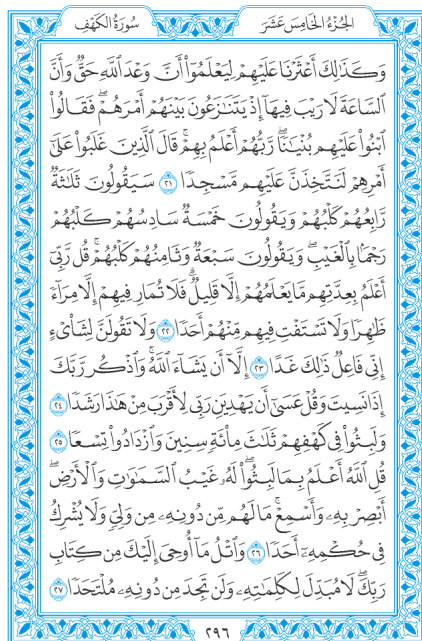 الجُزْءُ الخَامِسَ عَشَرَ
سُورَةُ الكَهْفِ
وَكَذَٰلِكَ أَعْثَرْنَا عَلَيْهِمْ لِيَعْلَمُوٓا۟ أَنَّ وَعْدَ ٱللَّهِ حَقٌّ وَأَنَّ
ٱلسَّاعَةَ لَا رَيْبَ فِيهَآ إِذْ يَتَنَٰزَعُونَ بَيْنَهُمْ أَمْرَهُمْ ۖ فَقَالُوا۟
ٱبْنُوا۟ عَلَيْهِم بُنْيَٰنًا ۖ رَّبُّهُمْ أَعْلَمُ بِهِمْ ۚ قَالَ ٱلَّذِينَ غَلَبُوا۟ عَلَىٰٓ
أَمْرِهِمْ لَنَتَّخِذَنَّ عَلَيْهِم مَّسْجِدًا ٢١ سَيَقُولُونَ ثَلَٰثَةٌ
رَّابِعُهُمْ كَلْبُهُمْ وَيَقُولُونَ خَمْسَةٌ سَادِسُهُمْ كَلْبُهُمْ
رَجْمًۢا بِٱلْغَيْبِ ۖ وَيَقُولُونَ سَبْعَةٌ وَثَامِنُهُمْ كَلْبُهُمْ ۚ قُل رَّبِّىٓ
أَعْلَمُ بِعِدَّتِهِم مَّا يَعْلَمُهُمْ إِلَّا قَلِيلٌ ۗ فَلَا تُمَارِ فِيهِمْ إِلَّا مِرَآءً
ظَٰهِرًا وَلَا تَسْتَفْتِ فِيهِم مِّنْهُمْ أَحَدًا ٢٢ وَلَا تَقُولَنَّ لِشَا۟ىْءٍ
إِنِّى فَاعِلٌ ذَٰلِكَ غَدًا ٢٣ إِلَّآ أَن يَشَآءَ ٱللَّهُ ۚ وَٱذْكُر رَّبَّكَ
إِذَا نَسِيتَ وَقُلْ عَسَىٰٓ أَن يَهْدِيَنِ رَبِّى لِأَقْرَبَ مِنْ هَٰذَا رَشَدًا ٢٤
وَلَبِثُوا۟ فِى كَهْفِهِمْ ثَلَٰثَ مِا۟ئَةٍ سِنِينَ وَٱزْدَادُوا۟ تِسْعًا ٢٥
قُلِ ٱللَّهُ أَعْلَمُ بِمَا لَبِثُوا۟ ۖ لَهُۥ غَيْبُ ٱلسَّمَٰوَٰتِ وَٱلْأَرْضِ ۖ
أَبْصِرْ بِهِۦ وَأَسْمِعْ ۚ مَا لَهُم مِّن دُونِهِۦ مِن وَلِىٍّ وَلَا يُشْرِكُ
فِى حُكْمِهِۦٓ أَحَدًا ٢٦ وَٱتْلُ مَآ أُوحِىَ إِلَيْكَ مِن كِتَابِ
رَبِّكَ ۖ لَا مُبَدِّلَ لِكَلِمَٰتِهِۦ وَلَن تَجِدَ مِن دُونِهِۦ مُلْتَحَدًا ٢٧
٢٩٦